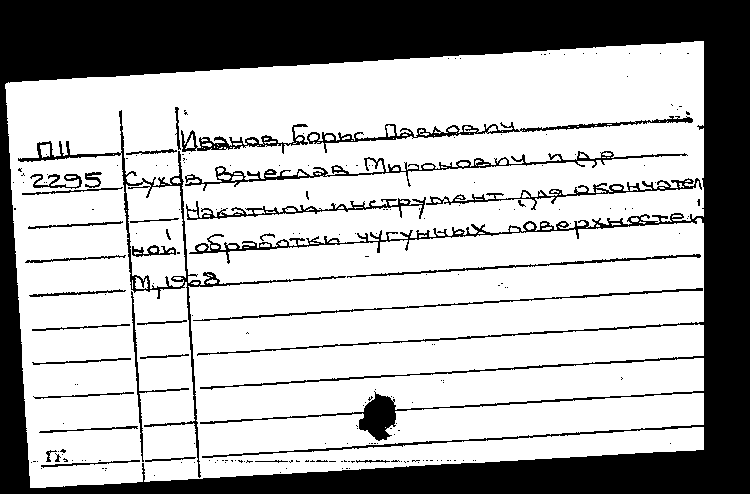 П11 Иванов, Борис Павлович
2295 Сухов, Вячеслав Миронович и др
Накатной инструмент для окончател
ной обработки чугунных поверхностей
М., 1968